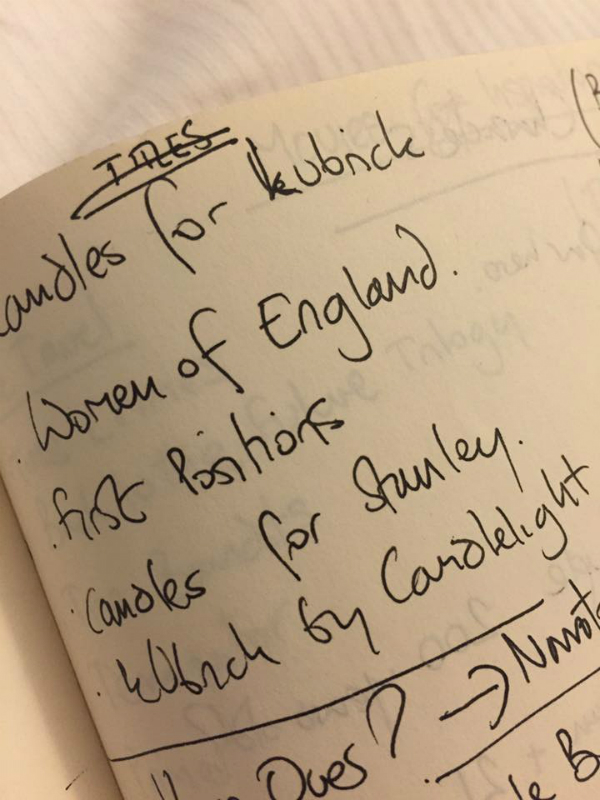 TITLES
andles for Kubrick
. Women of England.
. First Positions
. Candles for Stanley.
. Kubrick by Candlelight
Dues? → Narrat